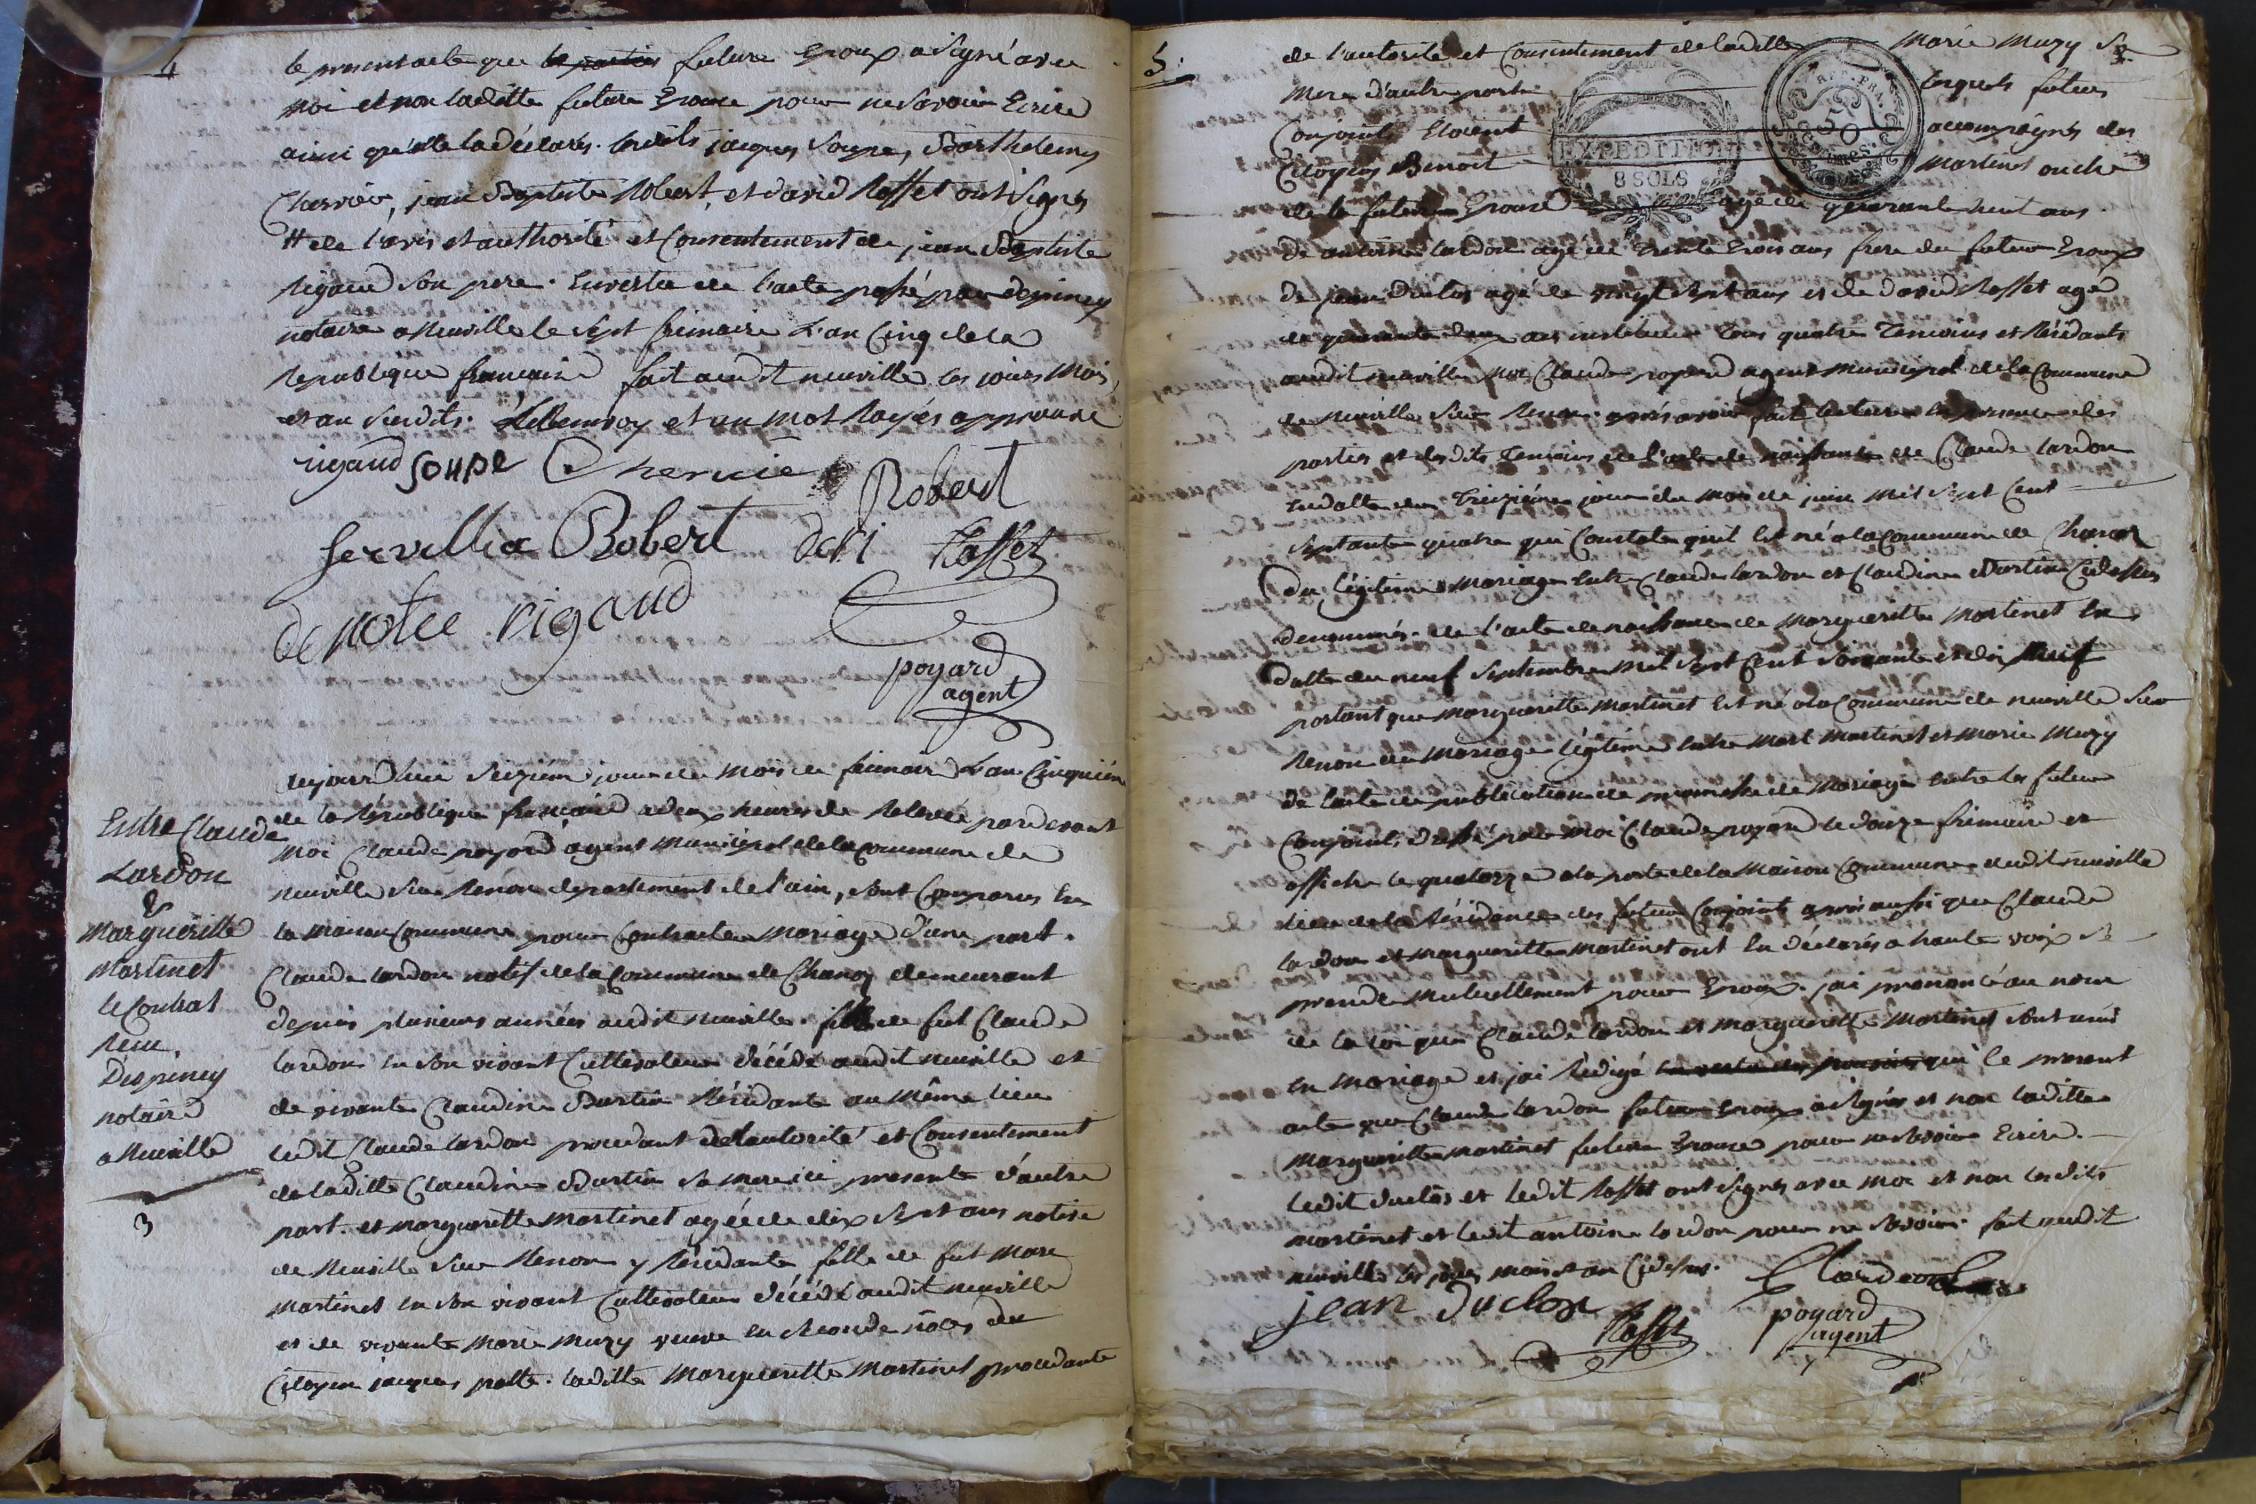 4
le present acte que les parties future Epoux a signé avec
moi et non laditte future Epouse pour ne savoir Ecrire
ainsi qu'elle la déclaré. lesdits jacques soupe, Barthelemy
Chervié, jean Baptiste Robert, et david Rosset ont signés
# de l'avis et authorité et Consentement de jean Baptiste
Rigaud son pere. En vertu de l'acte passé par depiney
notaire a Neuville le sept frimaire L'an Cinq de la
Republique française fait audit neuville les jour Mois,
et an susdits. et un mot Rayés approuvé
rigaud soupe Chervie Robert
servillia Robert deri Rosset
de notee rigaud
poyard
agent
Entre Claude
Lardon
&
Margueritte
Martinet
le Contrat
Reçu
Depiney
notaire
a Neuville
3
aujourd'hui seizieme jour du mois de frimaire L'an Cinquieme
de la République française a deux heures de Relevée pardevant
Moi Claude poyard agent Municipal de la Commune de
neuville sur Renon departement de l'ain, sont Comparus En
la maison Commune pour Contracter mariage d'une part.
Claude lardon natif de la Commune de Chanoz demeurant
depuis plusieurs années audit neuville. fils de fut Claude
lardon En son vivant Cultivateur décédé audit neuville et
de vivante Claudine Burtin Résidante au même lieu
ledit Claude lardon procedant de l'autorité et Consentement
de laditte Claudine Burtin sa mere ici presente d'autre
part. et margueritte Martinet agée de dix sept ans native
de Neuville sur Renon y Résidante fille de fut Marc
Martinet En son vivant Cultivateur décédé audit neuville
et de vivante Marie Muzy veuve En seconde nôces du
Citoyen jacques patte. laditte Margueritte Martinet procedante
5.
de l'autorité et Consentement de laditte Marie Muzy sa
Mere d'autre part. lesquels futurs
Conjoints Etoient accompagnés des
Citoyens Benoit Martinet oncle
EXPEDITION
8 SOLS
REP. FRA.
50
de la future Epouse agé de quarante huit ans
de antoine lardon agé de trente trois ans frere du futur Epoux
de jean Duclos agé de vingt sept ans et de david Rosset agé
de quarante deux ans instituteur tous quatre Temoins et Résidants
audit neuville Moi Claude poyard agent Municipal de la Commune
de Neuville sur Renon. après avoir fait lecture En presence des
parties et desdits Temoins de l'acte de naissance de Claude lardon
En datte du Treizieme jour du mois de juin Mil sept Cent
septante quatre qui Constate qu'il Est né a la Commune de Chanoz
Du légitime Mariage Entre Claude lardon et Claudine Burtin Cidessus
denommés. de l'acte de naissance de Margueritte Martinet En
Datte du neuf septembre Mil sept Cent soixante et dix Neuf
portant que Margueritte Martinet Est né a la Commune de neuville sur
Renon du Mariage légitime Entre Marc Martinet et Marie Muzy
De l'acte de publication de promesse de Mariage Entre les futurs
Conjoints, dressé par Moi Claude poyard le douze frimaire et
affiché le quatorze a la porte de la Maison Commune dudit neuville
lieu de la Résidence des futurs Conjoints après aussi que Claude
lardon et Margueritte Martinet ont Eu déclarés a haute voix se
prendre Mutuellement pour Epoux. jai prononcé au nom
de la loi que Claude lardon et Margueritte Martinet sont unis
En Mariage et jai Rédigé le present
acte que Claude lardon futur Epoux a signé et non laditte
Margueritte Martinet future Epouse pour ne savoir Ecrire.
ledit duclos et ledit Rosset ont signés avec Moi et non lesdits
Martinet et ledit antoine lardon pour ne savoir. fait audit
neuville les jour mois et an Cidessus.
C lardon
jean duclos Rosset poyard
agent